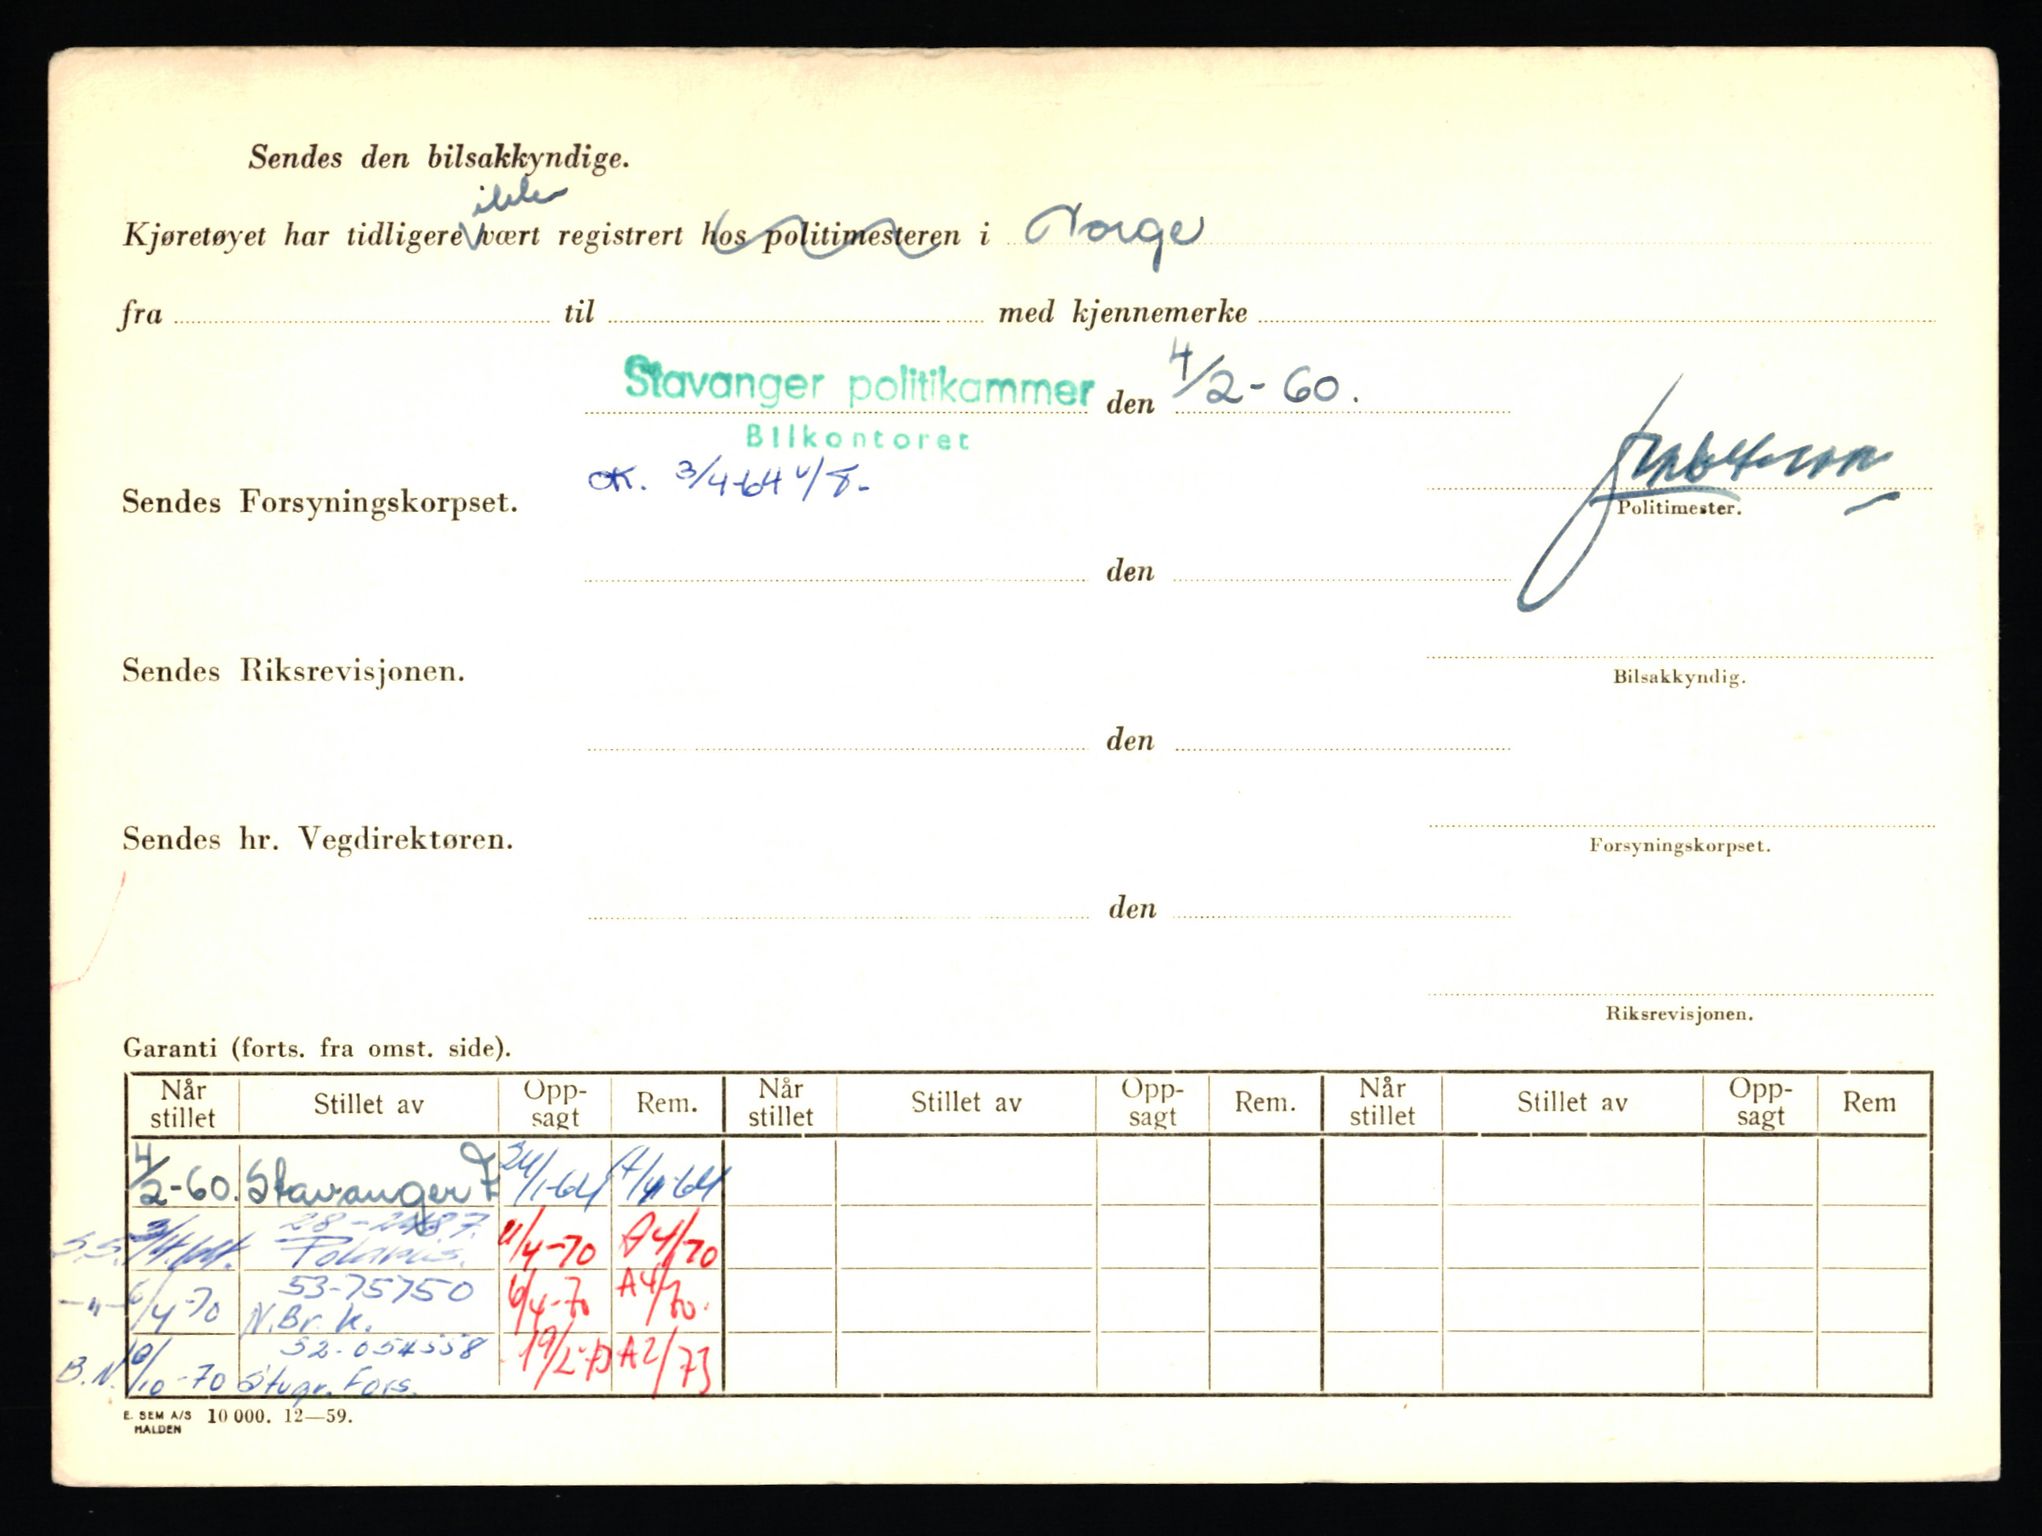 Sendes den bilsakkyndige.
ikke
Kjøretøyet har tidligere vært registrert hos politimesteren i Norge
fra til med kjennemerke
Stavanger politikammer den 4/2-60.
Bilkontoret
OK. 3/4-64
Sendes Forsyningskorpset.
Politimester.
den
Sendes Riksrevisjonen.
Bilsakkyndig.
den
Sendes hr. Vegdirektøren.
Forsyningskorpset.
den
Riksrevisjonen.
Garanti (forts. fra omst. side).
Når stillet Stillet av Opp-sagt Rem. Når stillet Stillet av Opp-sagt Rem. Når stillet Stillet av Opp-sagt Rem
4/2-60. Stavanger 24/1-64
S.S. 3/4-64. Polaris. 11/4-70 A4/70
53-75750
-"- 6/4-70 N.Br.k. 6/4-70 A4/70.
52-054558
B.N. 10-70 Stvgr. Fors. 19/2-73 A2/73
E. SEM A/S 10 000. 12—59.
HALDEN